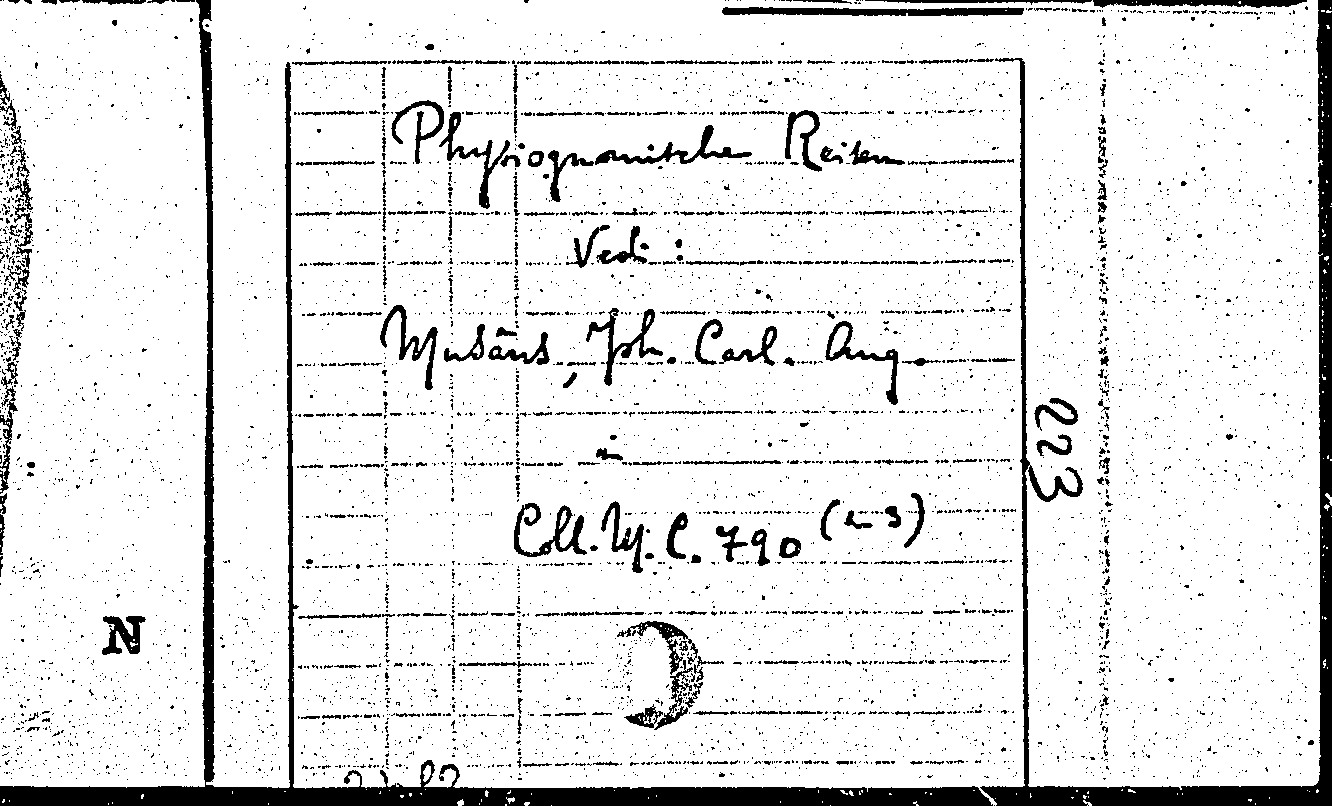 Physiognomische Reisen
Vedi:
Musäus, Joh. Carl. Aug.
in
Coll. M. C. 790 (1-3)
223
N